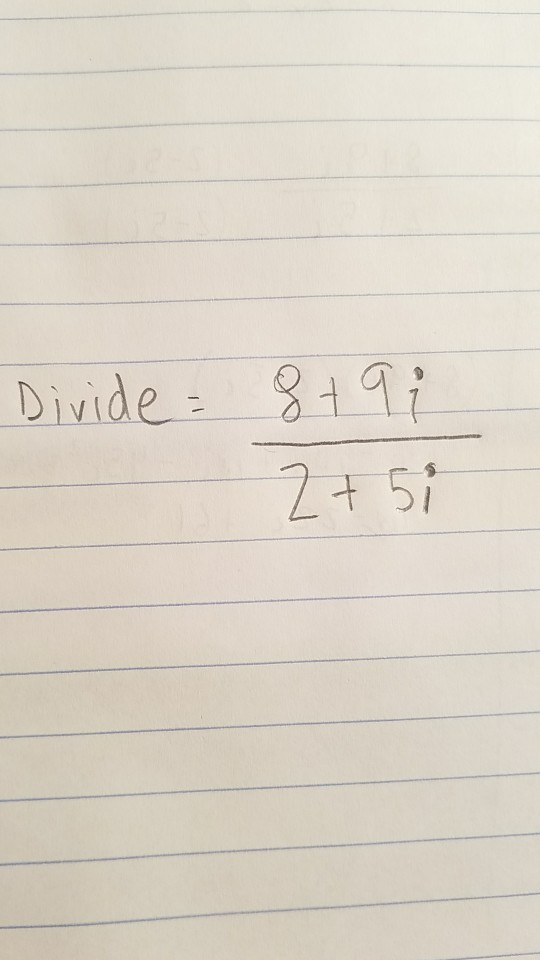 Divide = 8 + 9i
2 + 5i